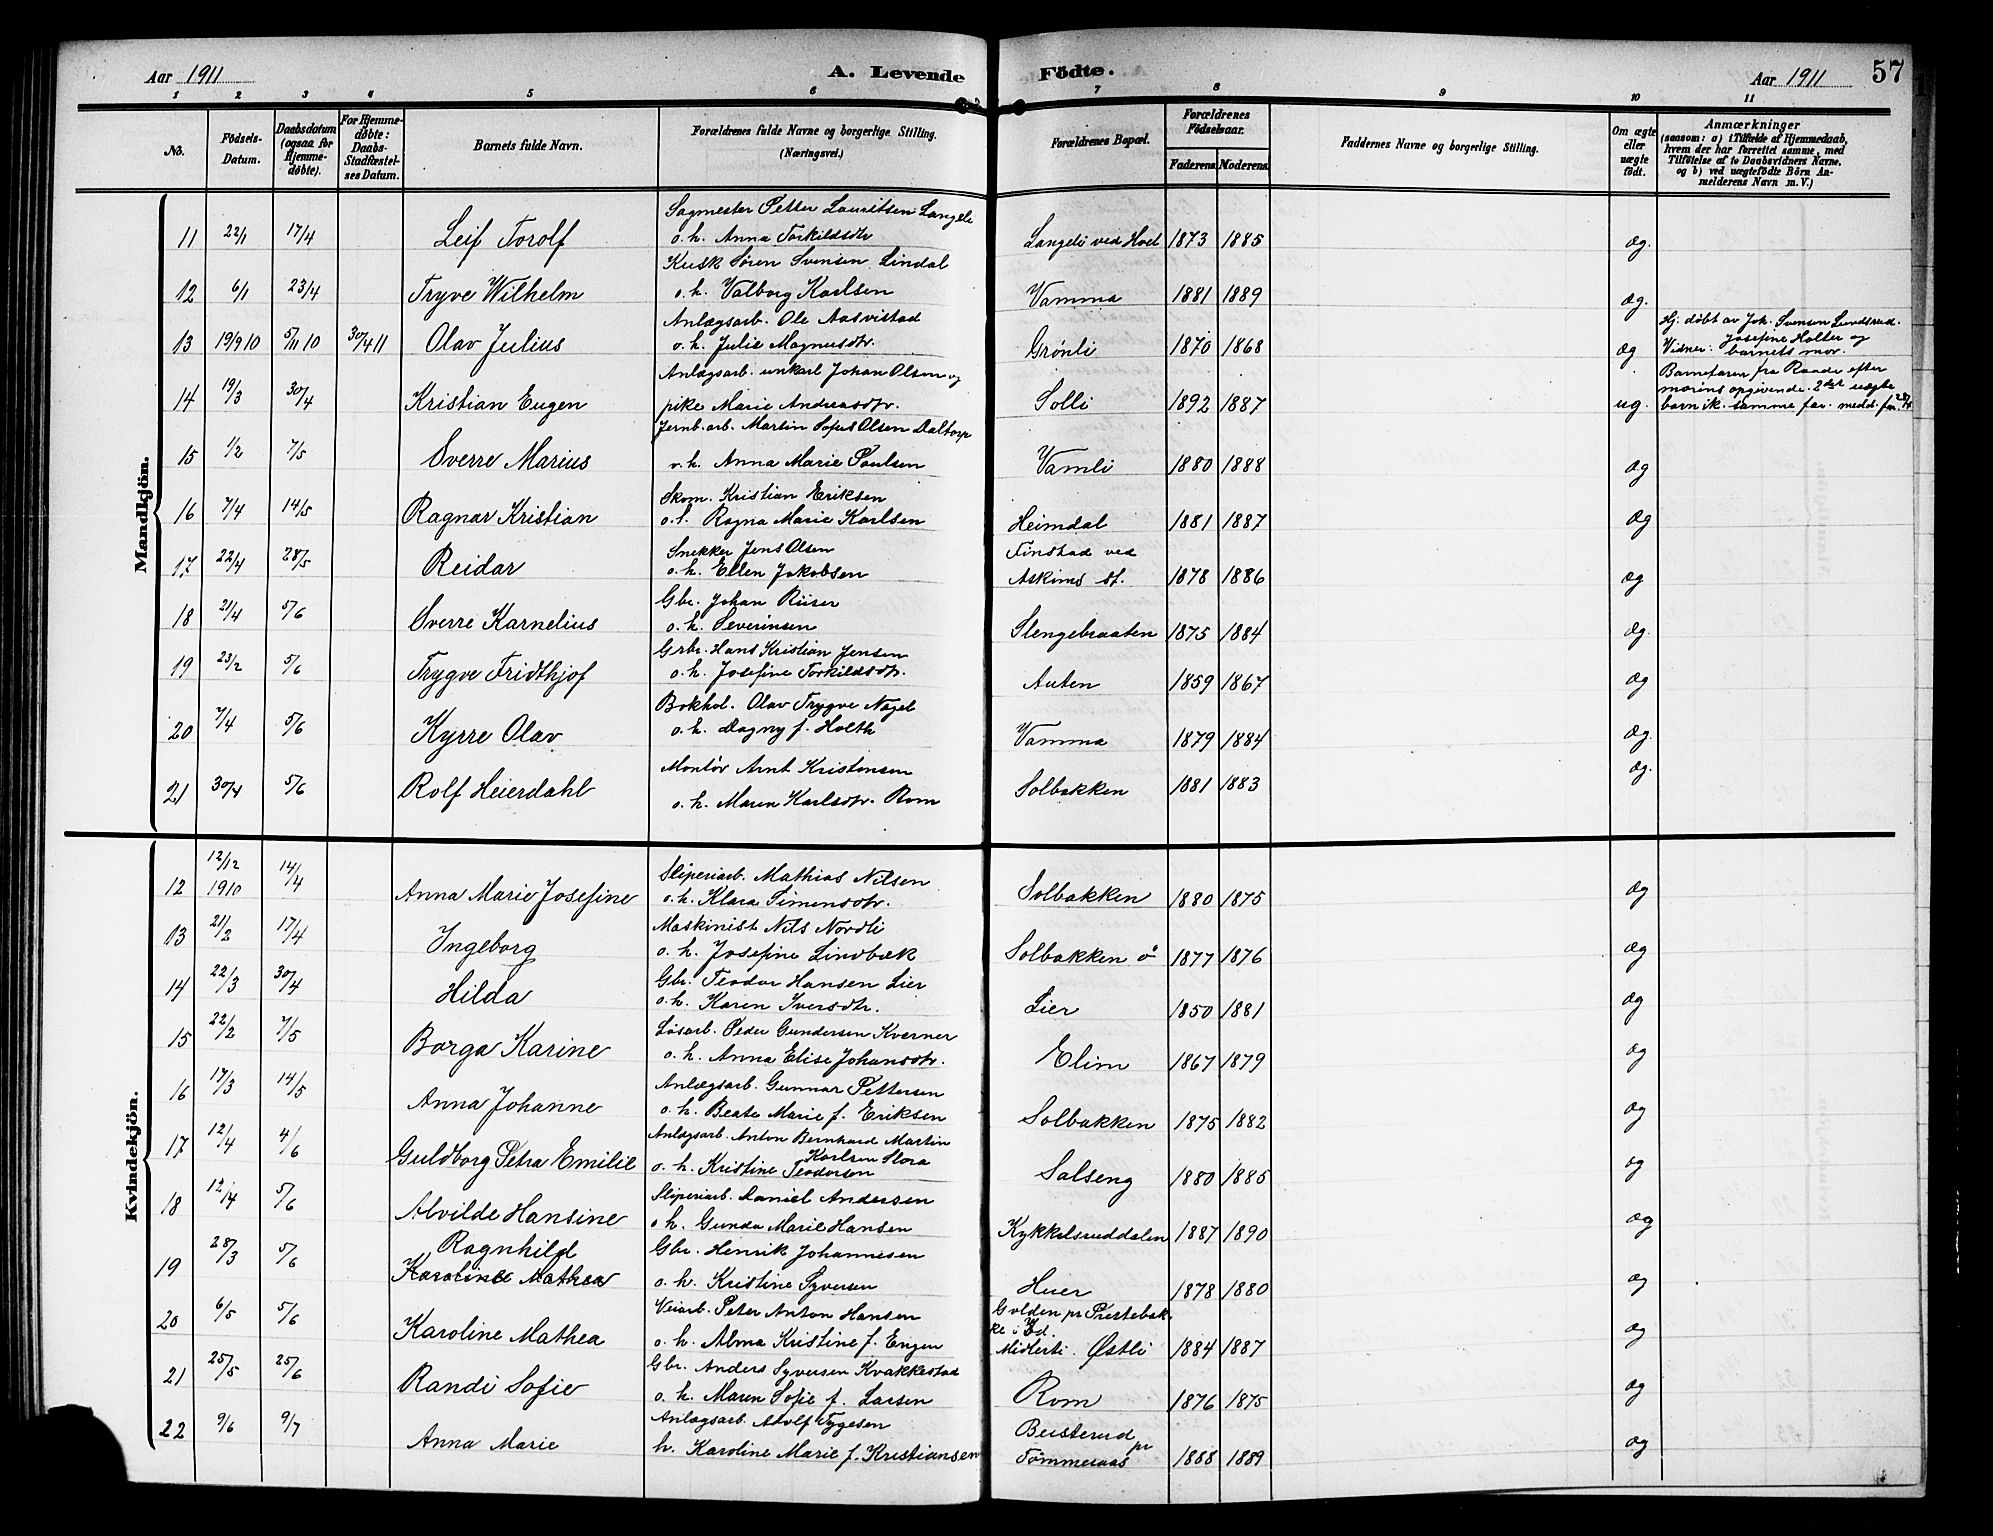 Aar 1911 A. Levende Födte. Aar 1911 57
1 2 3 4 5 6 7 8 9 10 11
No. Födsels-Datum. Daabsdatum (ogsaa for Hjemmedöbte). For Hjemmedøbte: Daabs-Stadfæstelses Datum. Barnets fulde Navn. Forældrenes fulde Navne og borgerlige Stilling. (Næringsvei.) Forældrenes Bopæl. Forældrenes Födselsaar. Faderens Moderens Faddernes Navne og borgerlige Stilling. Om ægte eller uægte födt. Anmærkninger (saasom: a) i Tilfælde af Hjemmedaab, hvem der har forrettet samme, med Tilföielse af to Daabsvidners Navne, og b) ved uægtefödte Börn Anmelderens Navn m. V.)
Mandkjön.
Sagmester Petter Lauritsen Langeli
11 22/1 17/4 Leif Torolf o. h. Anna Torkildsdtr Langeli ved Hvel 1873 1885 æg.
Kusk Søren Svensen Lindal
12 6/1 23/4 Tryve Wilhelm o. h. Valborg Karlsen Vamma 1881 1889 æg.
Anlægsarb. Ole Aasvistad Hj. døbt av Joh. Svensen Lundsrud.
13 19/9 10 5/11 10 30/4 11 Olav Julius o. h. Julie Magnusdtr. Grønli 1870 1868 æg Vidner: Josefine Holter og barnets mor.
Anlægsarb. unkarl Johan Olsen og Barnefaren fra Raade efter
14 19/3 30/4 Kristian Eugen pike Marie Andreasdtr. Solli 1892 1887 ug. morens opgivende. 2det uægte
barn ik. samme far. medd. far.
Jernb. arb. Martin Sofus Olsen Daltorp
15 1/2 7/5 Sverre Marius o. h. Anna Marie Paulsen Vamli 1880 1888 æg
Skom. Kristian Eriksen
16 7/4 14/5 Ragnar Kristian o. h. Ragna Marie Karlsen Heimdal 1881 1887 æg
Snekker Jens Olsen Finstad ved
17 22/4 28/5 Reidar o. h. Ellen Jakobsen Askims st. 1878 1886 æg
Gbr. Johan Riiser
18 21/4 5/6 Sverre Karnelius o. h. Severinsen Slengebraaten 1875 1884 æg.
Grbr. Hans Kristian Jensen
19 23/2 5/6 Trygve Fridthjof o. h. Josefine Torkildsdtr. Auten 1859 1867 æg
Bokhol. Olav Trygve Nagel
20 7/4 5/6 Kyrre Olav o. h. Dagny f. Holth Vamma 1879 1884 æg.
Montør Arnt Kristensen
21 30/4 5/6 Rolf Heierdahl o. h. Maren Karlsdtr. Rom Solbakken 1881 1883 æg.
Kvindekjön.
Sliperiarb. Mathias Nilsen
12 12/12 1910 14/4 Anna Marie Josefine o. h. Klara Simensdtr. Solbakken 1880 1875 æg
Maskinist Nils Nordli
13 21/2 17/4 Ingeborg o. h. Josefine Lindbæk Solbakken ö 1877 1876 æg
Gbr. Teodor Hansen Lier
14 22/3 30/4 Hilda o. h. Karen Iversdtr. Lier 1850 1881 æg
Løsarb. Peder Gundersen Kverner
15 22/2 7/5 Borga Karine o. h. Anna Elise Johansdtr. Elim 1867 1879 æg
Anlægsarb. Gunnar Pettersen
16 17/3 14/5 Anna Johanne o. h. Beate Marie f. Eriksen Solbakken 1875 1882 æg
Anlægsarb. Anton Bernhard Martin
Karlsen Slora
17 12/4 4/6 Guldborg Petra Emilie o. h. Kristine Teodorsen Salseng 1880 1885 æg
Sliperiarb. Daniel Andersen
18 12/4 5/6 Alvilde Hansine o. h. Gunda Marie Hansen Kykkelsruddalen 1887 1890 æg
Ragnhild Gbr. Henrik Johannesen
19 28/3 5/6 Karoline Mathea o. h. Kristine Syversen Huer 1878 1880 æg
Veiarb. Peter Anton Hansen Golden pr Prestebakke i Id.
20 6/5 5/6 Karoline Mathea o. h. Alma Kristine f. Engen Midlerti. Østli 1884 1887 æg
Gbr. Anders Syversen Kvakkestad
21 25/5 25/6 Randi Sofie o. h. Maren Sofie f. Larsen Rom 1876 1875 æg
Anlægsarb. Adolf Tygesen Beisterud pr
22 9/6 9/7 Anna Marie h. Karoline Marie f. Kristiansen Tömmeraas 1888 1889 æg